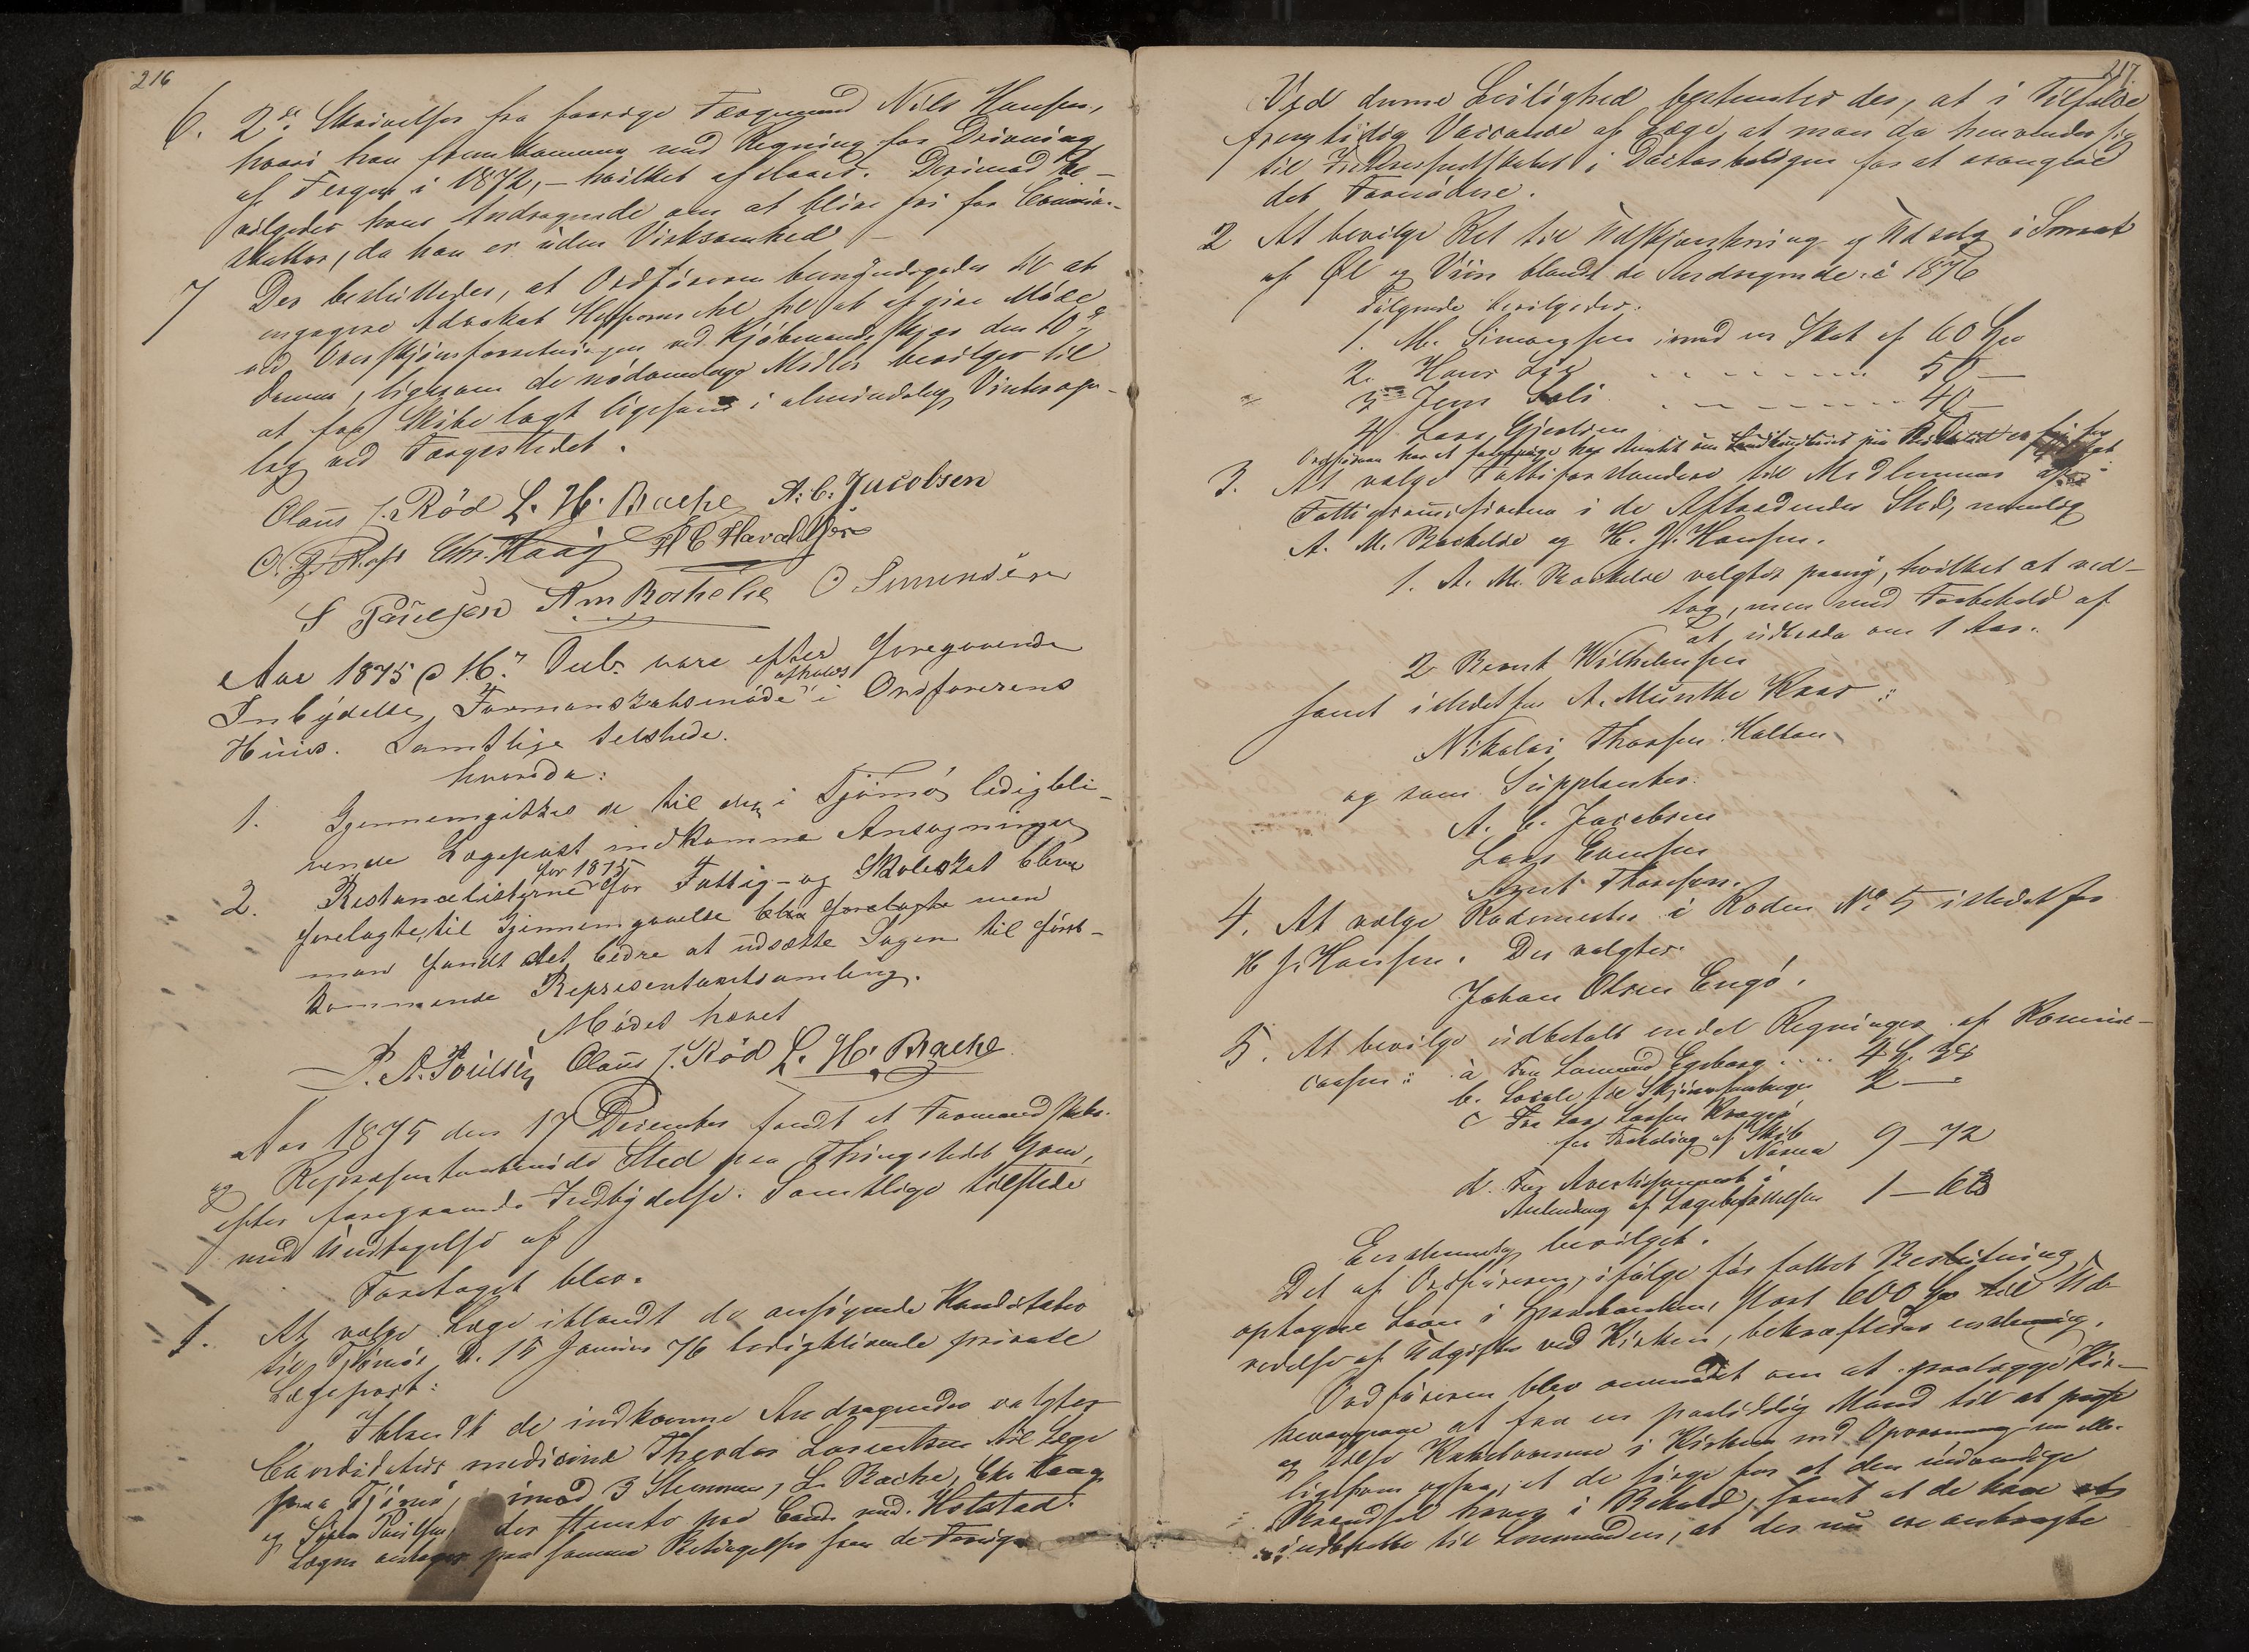 216
6. 2de Skrivelser fra forrige Færgemand Nils Hansen,
hvori han fremkommer med Regning for Drivning
af Fergen i 1872, – hvilket afsloges. Derimod be-
vilgedes hans Andragende om at blive fri for Commune-
skatter, da han er uden Virksomhed –
7 Der besluttedes, at Ordføreren bemyndigedes til at
engagere Advokat til at afgive Møde
ved Overskjønsforretningen ved Kjøbmandskjær den 10de
dennes, ligesom de nødvendige Midler bevilges til
at faa Skibe lagt ligesom i almindelig Vinterop-
lag ved Færgestedet.
Olaus J. Rød L. H. Bache A. C. Jacobsen
Chr. Haag H C Haraldsen
S Paulsen A M Bachelse O Simonsen
Aar 1875 d 16de Decbr. var efter foregaaende
Inbydelse Formanskabsmøde afholdt i Ordførerens
Huus. Samtlige telstede.
hvorda:
1. Gjennemgikkes de til den i Tjømø ledigbli-
vende Lægepost indkomne Ansøgninger
2. Restancelisterne for 1875 for Fattig- og Skoleskat bleve
forelagte, til Gjennemgaaelse blev forelagte men
man fandt det bedre at udsætte Sagen til først-
kommende Representantsamling.
Mødet hævet
P. A. Poulsen Olaus J. Rød L. H. Bache
Aar 1875 den 17 December fandt et Formandskabs-
og Repræsentantmøde Sted paa Thingstedet Grim,
efter foregaaende Indbydelse. Samtlige tilstede
med Undtagelse af
Foretaget blev.
1. At vælge Læge iblandt de ansøgende Kandidater
til Tjømøs d. 15 Januar 76 ledigblivende private
Lægepost:
Iblandt de indkomne Andragender valgtes
Candidatus medicine Theodor Lorentzen til Læge
paa Tjømø, imod 3 Stemmer, L. Bache, Chr. Haag
og Søren Paulsen, der stemte paa Cand. med. Holstad.
Lægen antages paa samme Betingelser som de forrige
217.
Ved denne Leilighed bestemtes der, at i Tilfælde
fremtidig Vacance af Læge, at man da henvender sig
til i Doctorboligen for at arangere
det Fornødne.
2 At bevilge Ret til Udskjænkning og Udsalg i Smaat
af Øl og Viin blandt de Andragende i 1876
Følgende bevilgedes:
1. M. Simonsen imod en Skat af 60 Spd
2. Hans Lie - - - - - - 50 —
3 Jens Sole - - - - - - 40 —
4 Lars Gjertsen
3. At vælge Fattigforstandere til Medlemmer af
Fattigcommisionen i de Aftrædendes Sted, nemlig
A. M. Bachelse og H. J. Hansen.
1. A. M. Bachelse valgtes paany, hvilket at ved-
tog, men med Forbehold af
at udtræde om 1 Aar.
2 Bernt Wilhelmsen
samt istedetfor A. Münthe Kaas:
Nikolai Thorsen Holtan,
og som Supplenter.
A. C. Jacobsen
Lars Evensen
Thorsen.
4. At vælge Rodemester i Roden No 5 istedetfor
H J. Hansen. Der valgtes.
Johan Olsen Engø.
5. At bevilge udbetalt endel Regninger af Kommune-
cassen: a Fra Lamand Egeberg . . . . 4
b. Locale for Skjønsforretninger 2 —
c Fra Lars Larsen Kragø
for Fortøining af Skib
Norna 9 — 72
d. For Avertissement i
Anledning af Lægebesættelsen 1 — 63
Eenstemmig bevilget.
Det af Ordføreren, ifølge før fattet Beslutning
optagne Laan i Sparebanken, stort 600 Spd til Ud-
redelse af Udgifter ved Kirken, bekræftedes enstemmig.
Ordføreren blev anmodet om at paalægge Kir-
keværgene at faa en paalidelig Mand til at passe
og stelle Kakelovnene i Kirken ved Opvarmning
ligesom ogsaa, at de sørge for at den nødvendige
Brændsel haves i Behold, samt at de have at
indberette til Kommunen, at der nu ere anbragte